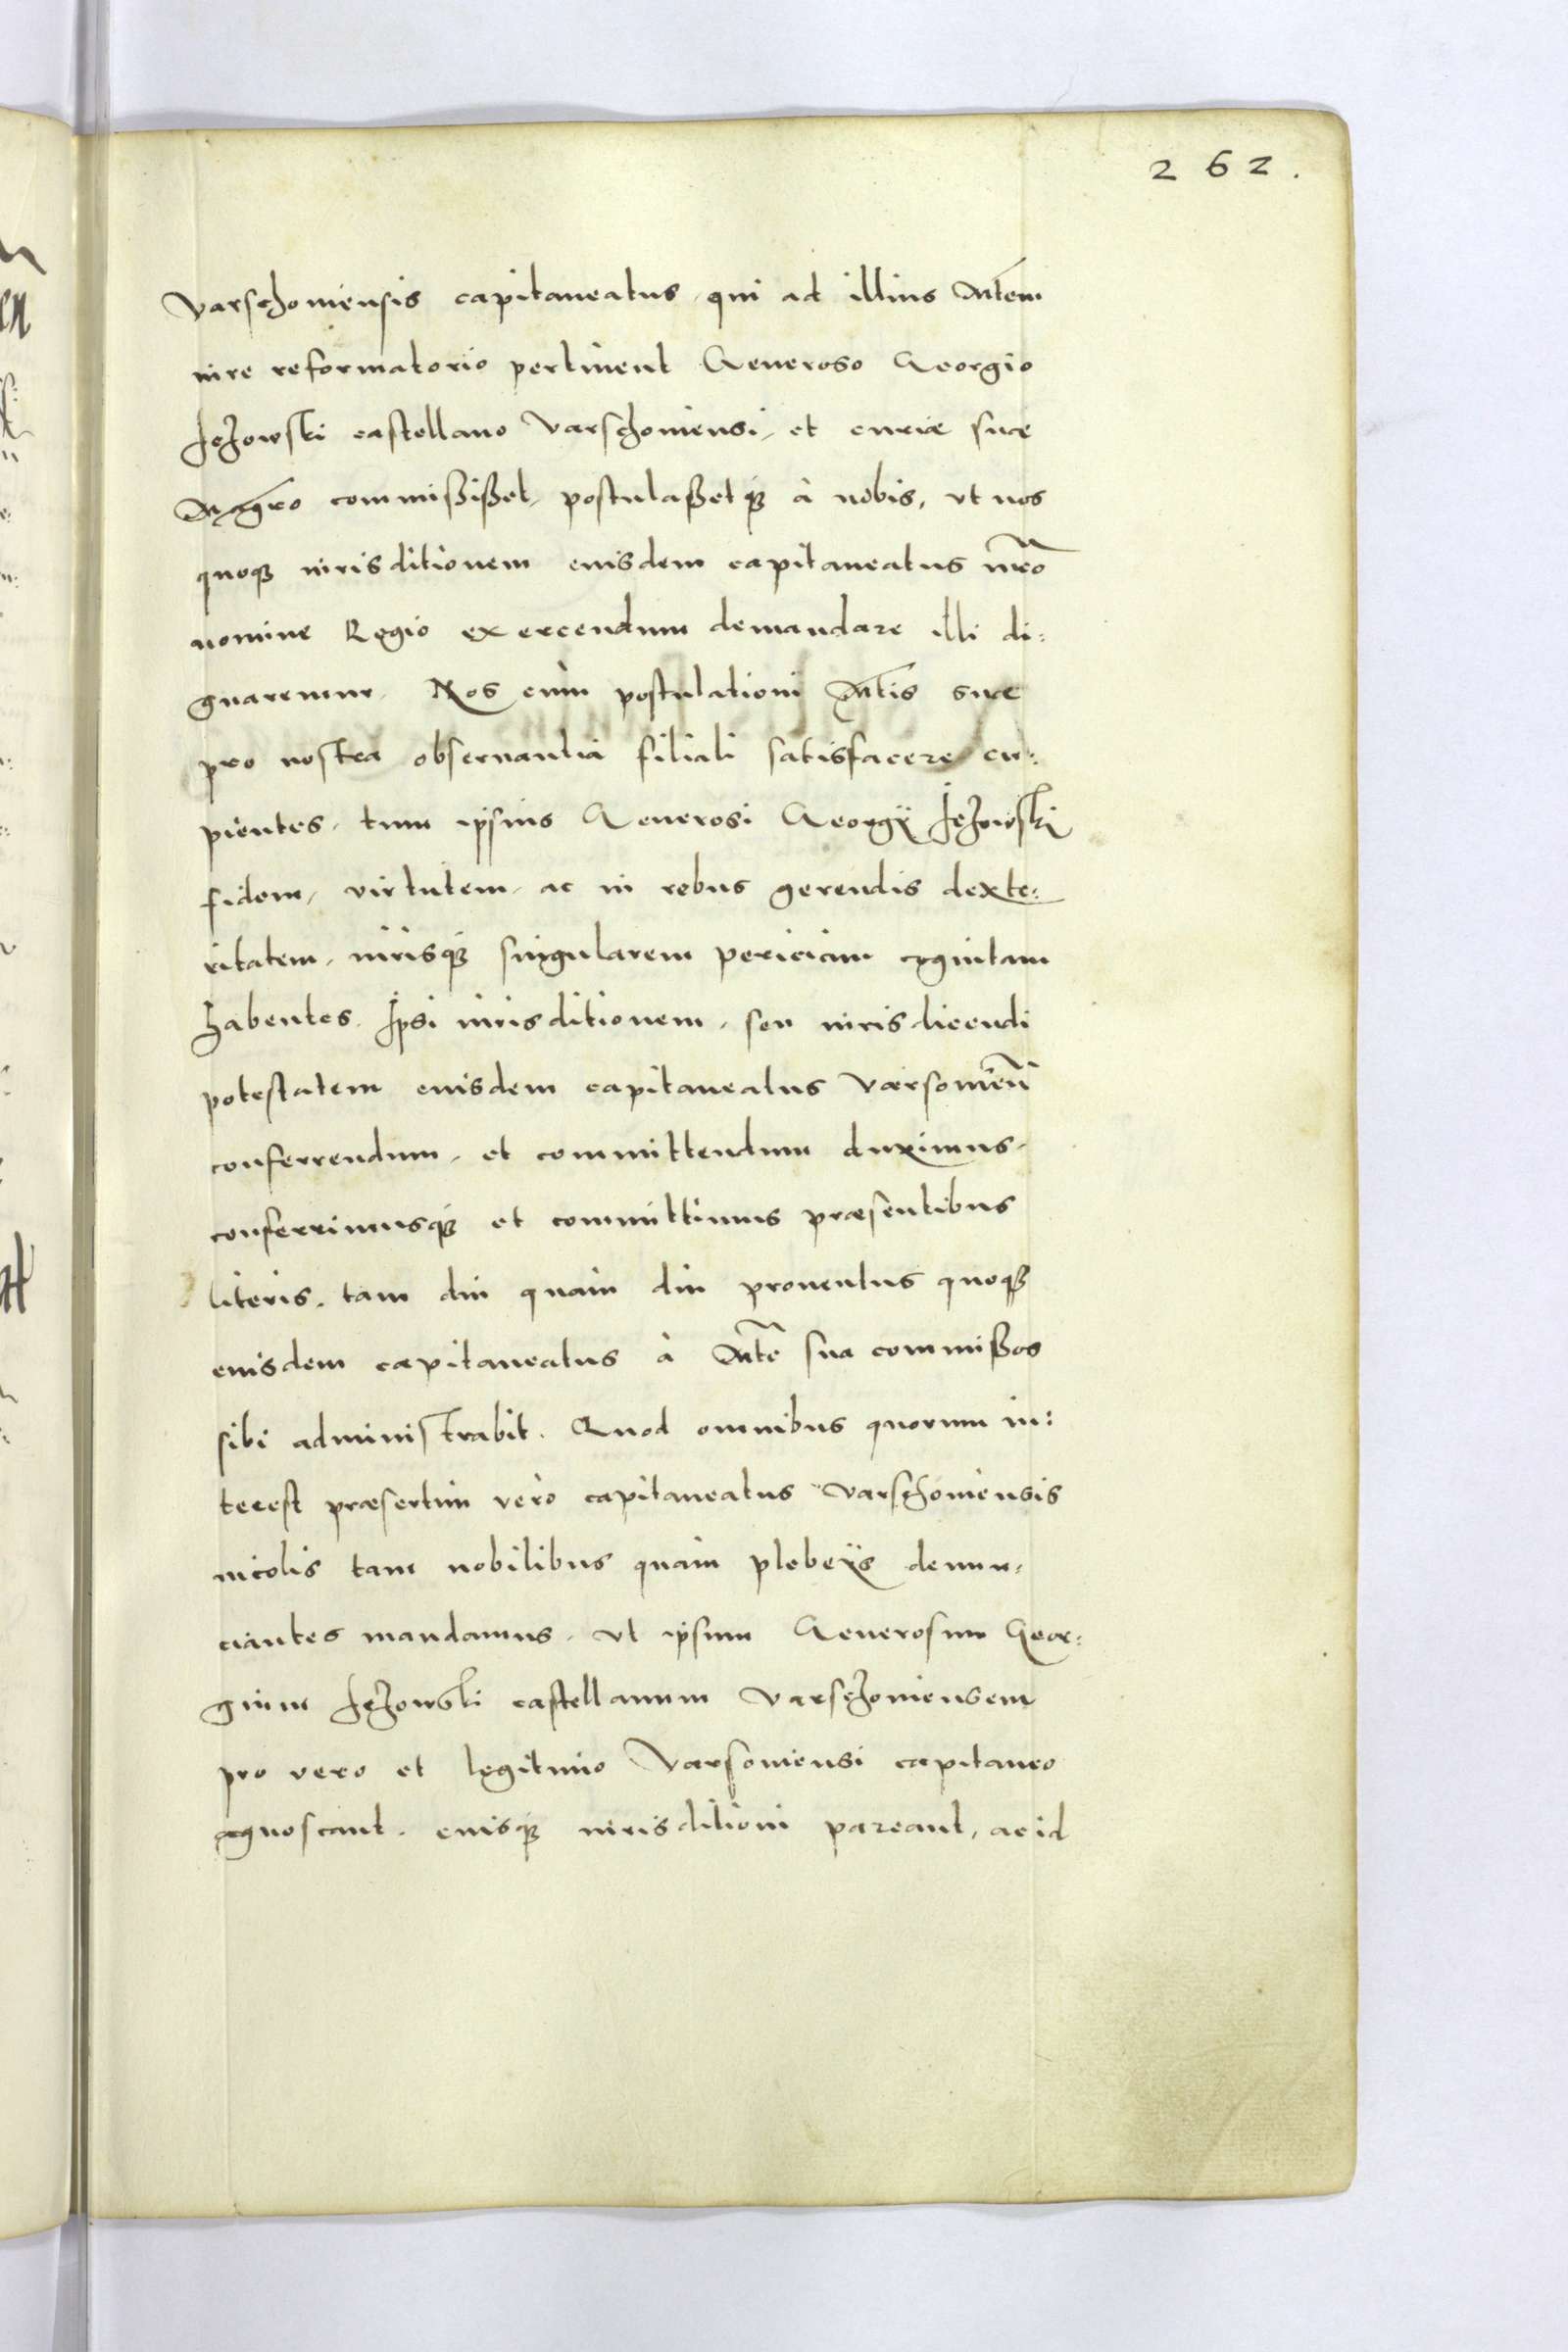 262.
Varschouiensis capitaneatus, qui ad illius Mtem
iure reformatorio pertinent Generoso Georgio
Jeżowski castellano Varschouiensi, et curiæ suæ
Magro commisißet, postulaßetq; à nobis, vt nos
quoq; iurisditionem eiusdem capitaneatus nro
nomine Regio exercendum demandare illi di:
gnaremur. Nos eùm postulationi Mtis suæ
pro nostra obseruantia filiali satisfacere cu:
pientes, tum ipsius Generosi Georgÿ Jeżowski
fidem, virtutem, ac in rebus gerendis dexte:
ritatem, iurisq; singularem periciam cognitam
habentes. Ipsi iurisditionem, seu iurisdicendi
potestatem eiusdem capitaneatus Varsouien
conferrendum, et committendum duximus,
conferrimusq; et committimus præsentibus
literis, tam diu quàm diu prouentus quoq;
eiusdem capitaneatus à Mte sua commißos
sibi administrabit. Quod omnibus quorum in:
terest præsertim verò capitaneatus Varschouiensis
incolis tam nobilibus quàm plebeÿs denun,
ciantes mandamus, vt ipsum Generosum Geor:
gium Jeżowski castellanum Varschouiensem
pro vero et legitimo Varsouiensi capitaneo
agnoscant, eiusq; iurisditioni pareant, ac id